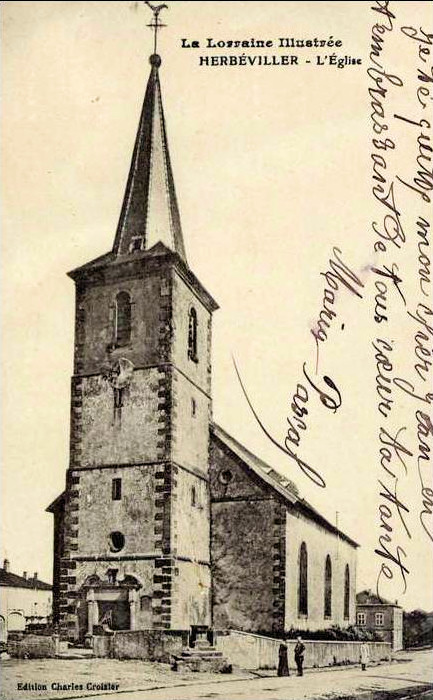 La Lorraine Illustrée
HERBÉVILLER - L'Église
Je té quitte mon cher Jan en
t'embrassant de tous cœur ta tante
Marie Parsal
Edition Charles Croizier